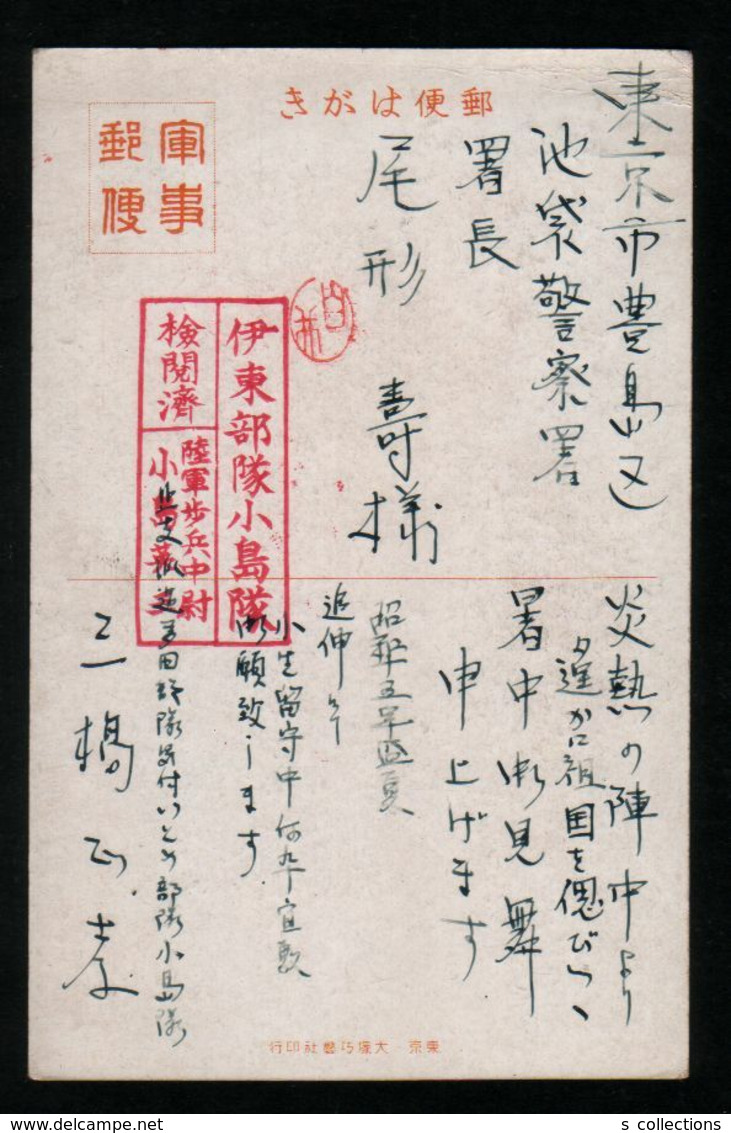 郵便はがき
軍事
郵便
東京市豊島区
池袋警察署
署長
尾形 壽様
伊東部隊小島隊
検閲済
陸軍歩兵中尉
小島
炎熱の陣中より
遥かに祖国を偲びつゝ
暑中御見舞
申上げます
昭和五年盛夏
追伸
小生留守中何卒宜敷
御願致します
北支派遣
部隊小島隊
三橋
東京 大塚巧藝社印行
s collections